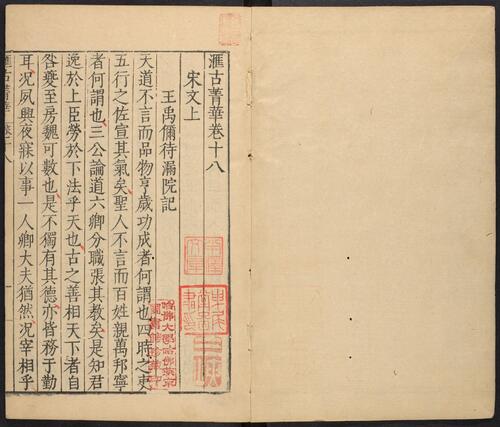 滙古菁華卷十八
宋文上
王禹偁待漏院記
天道不言而品物亨歲功成者何謂也四時之吏
五行之佐宣其氣矣聖人不言而百姓親萬邦寧
者何謂也三公論道六卿分職張其教矣是知君
逸於上臣勞於下法乎天也古之善相天下者自
咎夔至房魏可數也是不獨有其德亦皆務于勤
耳况夙興夜寐以事一人卿大夫猶然况宰相乎
滙古菁華 卷十八 一
哈佛大學哈佛燕京
圖書館珍藏印